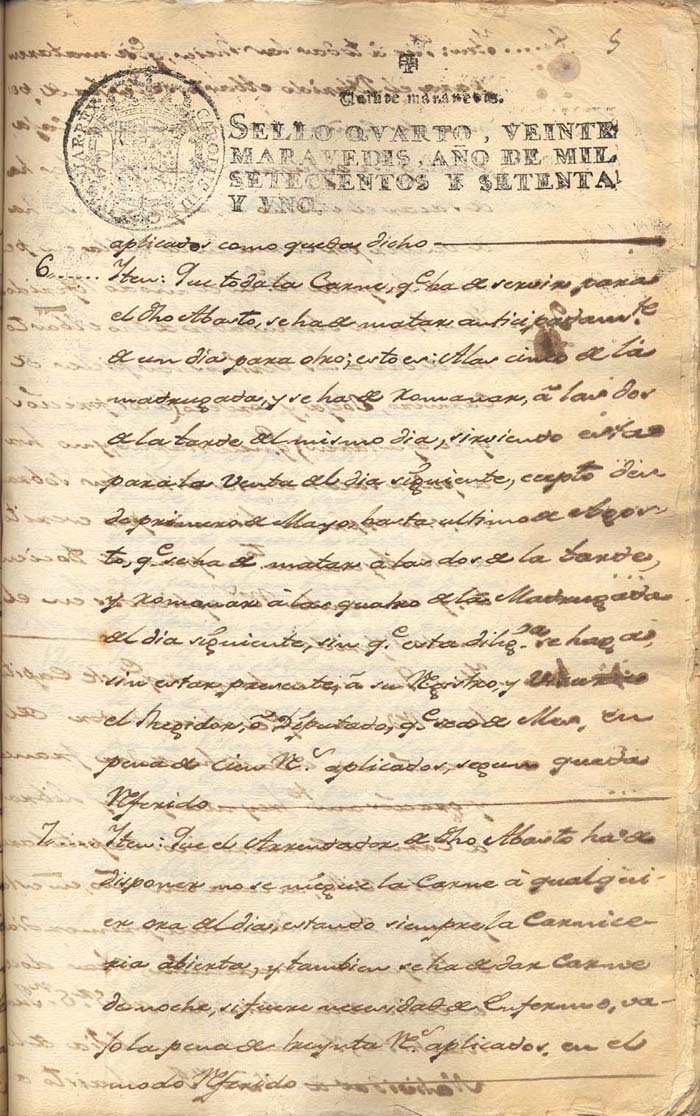 5
Quince maravedis.
SELLO QVARTO, VEINTE
MARAVEDIS, AÑO DE MIL
SETECIENTOS Y SETENTA
Y VNO.
aplicados como queda dicho
6...... Iten: Que toda la Carne, q.e ha de servir para
el dho Abasto, se ha de matar anticipadam.te
de un dia para otro; esto es: A las cinco de la
madrugada, y se ha de Romanar, à las dos
de la tarde del mismo dia, sirviendo esta
para la Venta del dia sig.uiente, cepto des-
de primero de Mayo, hasta ultimo de Agos-
to, q.e se ha de matar à las dos de la tarde,
y Romanar à las quatro de la Madrugada
del dia siguiente, sin q.e esta dilig.a se haga,
sin estar presente, à su Registro, y
el Regidor, ò Diputado, q.e sea de Mes, en
pena de cien R.s aplicados, segun queda
Referido
7.... Iten: Que el Arrendador de dho Abasto ha de
disponer no se niegue la Carne à qualqui-
er ora del dia, estando siempre la Carnice-
ria abierta, y tambien se ha de dar Carne
de noche, si fuere necesidad de Enfermo, va-
jo la pena de treynta R.s aplicados, en el
modo Referido